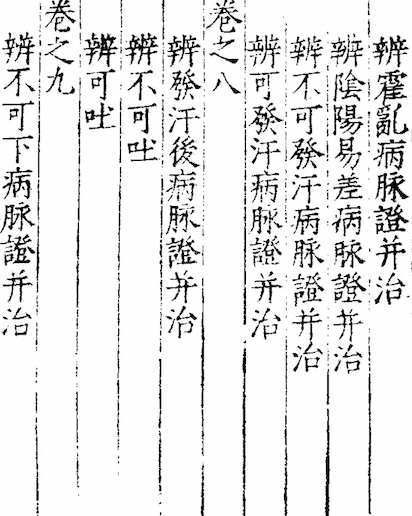 辨霍亂病脉證并治
辨陰陽易差病脉證并治
辨不可發汗病脉證并治
辨可發汗病脉證并治
卷之八
辨發汗後病脉證并治
辨不可吐
辨可吐
卷之九
辨不可下病脉證并治